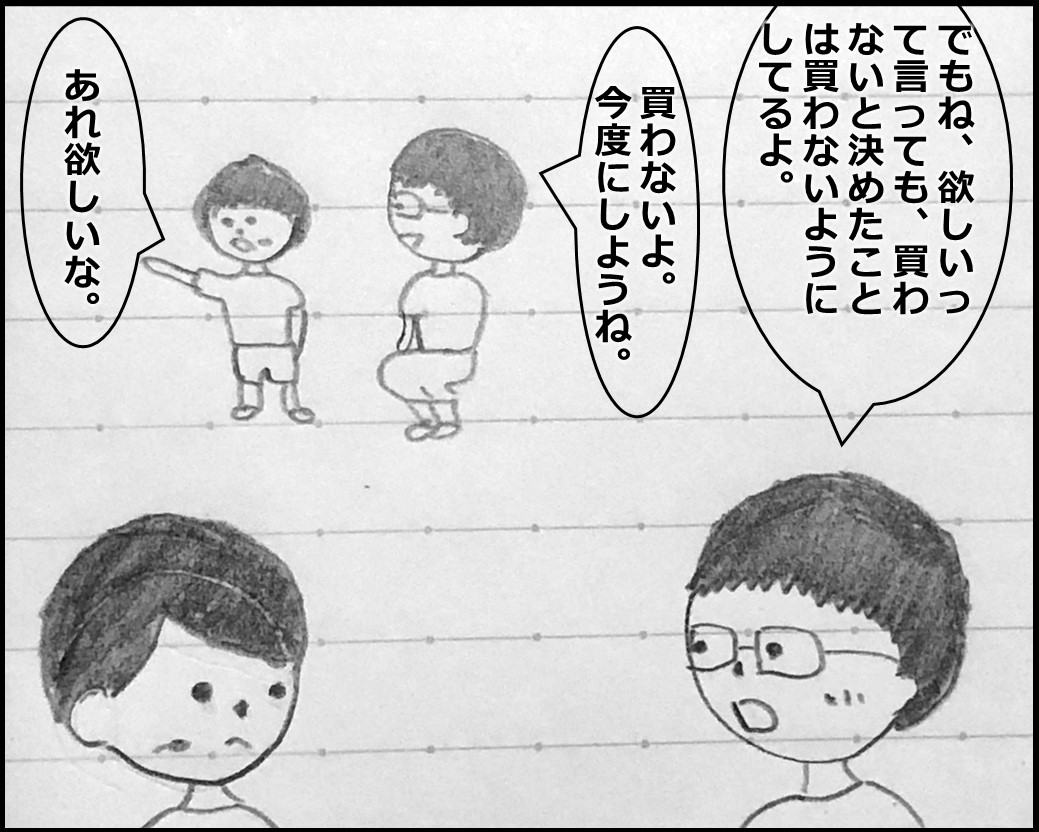 でもね、欲しいっ
て言っても、買わ
ないと決めたこと
は買わないように
してるよ。
買わないよ。
今度にしようね。
あれ欲しいな。